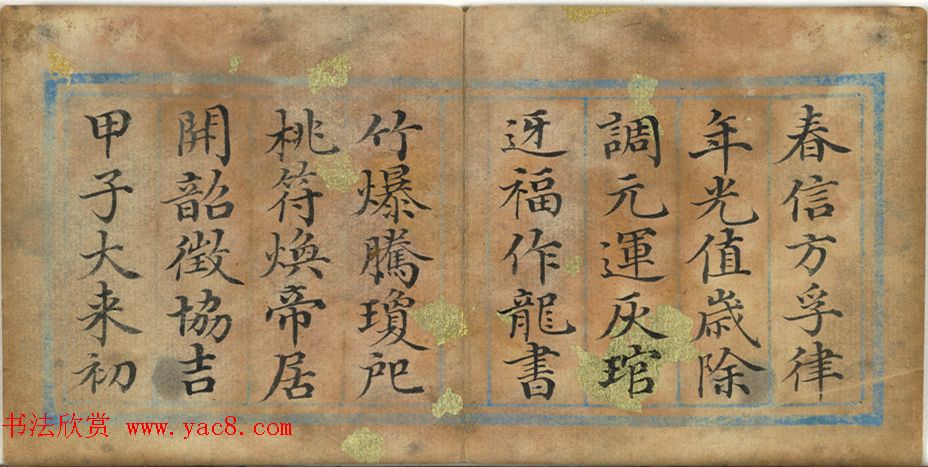 春信方孚律
年光值歲除
調元運灰琯
迓福作龍書
竹爆騰瓊戺
桃符煥帝居
開韶徵協吉
甲子大来初
书法欣赏 www.yac8.com